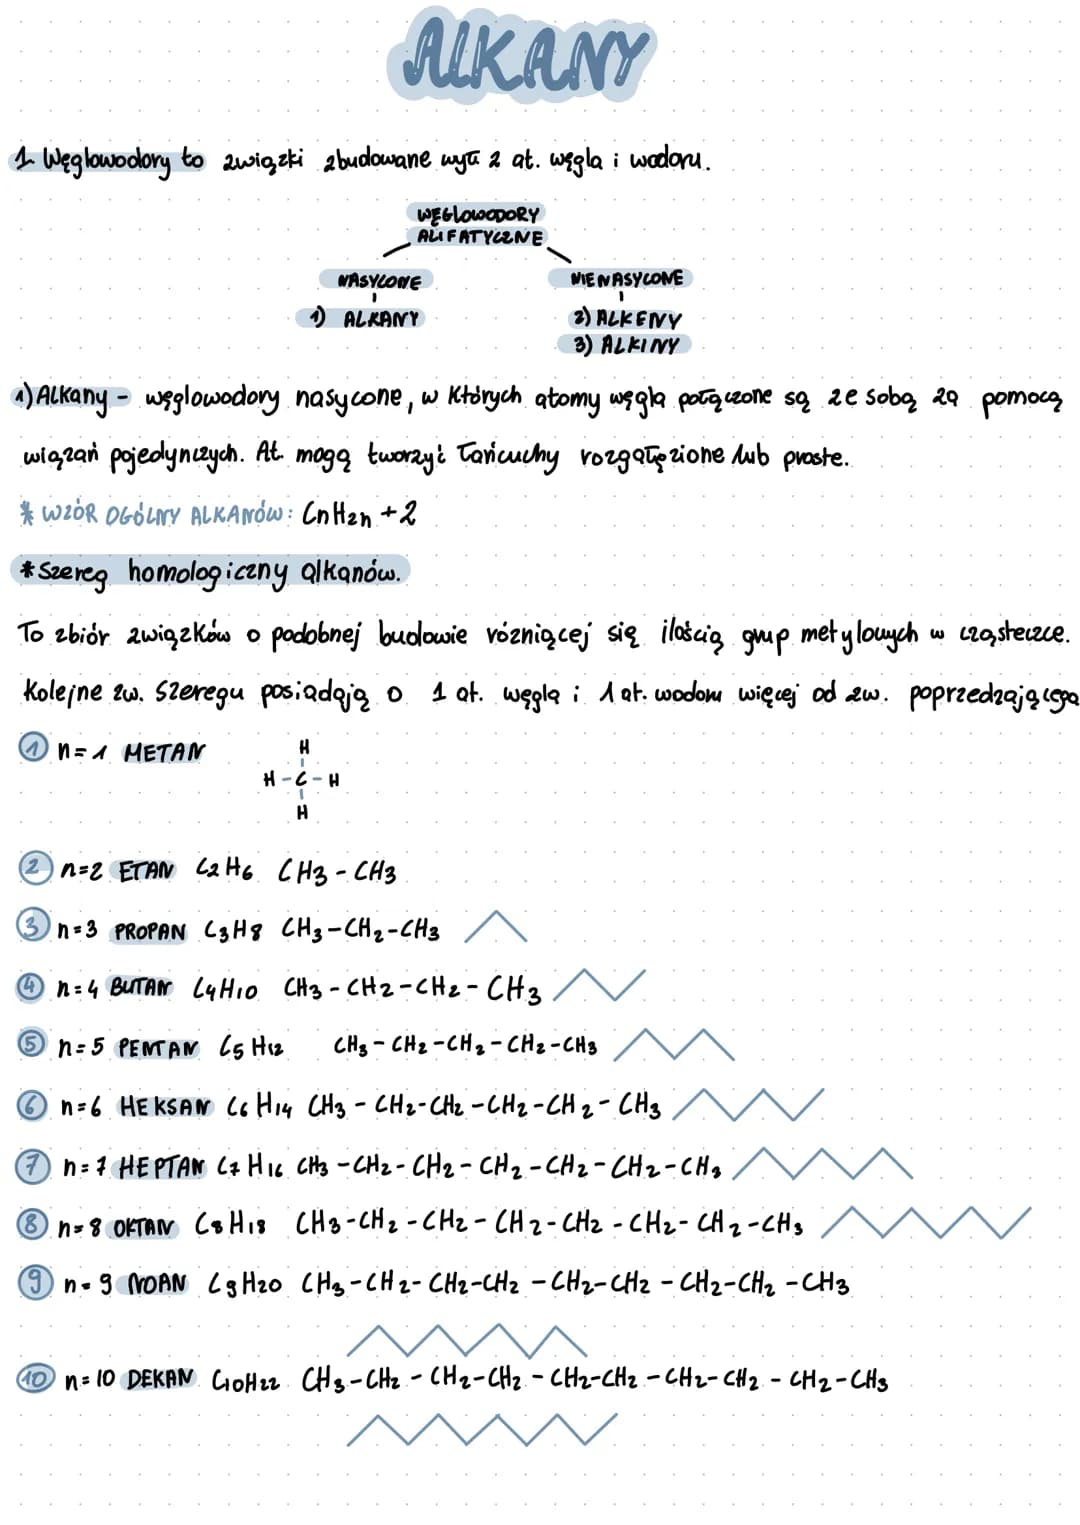 ALKANY
1. Węglowodory to związki zbudowane wył z at. węgla i wodoru.
WĘGLOWODORY
ALIFATYCZNE
NASYCONE
NIENASYCONE
1) ALKANY
2) ALKENY
3) ALKINY
1) Alkany - węglowodory nasycone, w których atomy węgla połączone są ze sobą za pomocą
wiązań pojedynczych. At. mogą tworzyć łańcuchy rozgałęzione lub proste.
* WZÓR OGÓLNY ALKANÓW: CnH2n+2
* Szereg homologiczny alkanów.
To zbiór związków o podobnej budowie różniącej się ilością grup metylowych w cząsteczce.
Kolejne zw. szeregu posiadają o 1 at. węgla i 1 at. wodoru więcej od zw. poprzedzającego
1 n=1 METAN
H
H-C-H
H
2 n=2 ETAN C2H6 CH3-CH3
3 n=3 PROPAN C3H8 CH3-CH2-CH3
4 n=4 BUTAN C4H10 CH3-CH2-CH2-CH3
5 n=5 PENTAN C5H12 CH3-CH2-CH2-CH2-CH3
6 n=6 HEKSAN C6H14 CH3-CH2-CH2-CH2-CH2-CH3
7 n=7 HEPTAN C7H16 CH3-CH2-CH2-CH2-CH2-CH2-CH3
8 n=8 OKTAN C8H18 CH3-CH2-CH2-CH2-CH2-CH2-CH2-CH3
9 n=9 NOAN C9H20 CH3-CH2-CH2-CH2-CH2-CH2-CH2-CH2-CH3
10 n=10 DEKAN C10H22 CH3-CH2-CH2-CH2-CH2-CH2-CH2-CH2-CH2-CH3